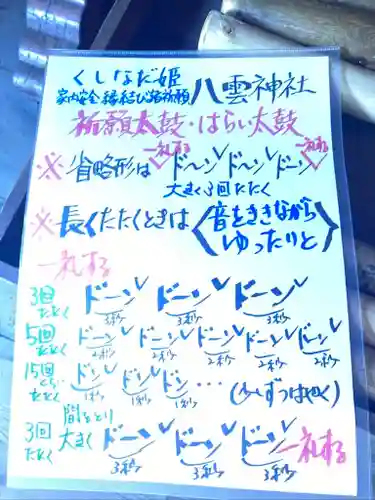 くしなだ姫
家内安全 縁結び諸祈願 八雲神社
祈願太鼓・はらい太鼓
一礼する 一礼する
※省略形は ドーン ドーン ドーン
大きく3回たたく
※長くたたくときは〈音をききながら ゆったりと〉
一礼する
3回たたく ドーン ドーン ドーン
3秒 3秒 3秒
5回たたく ドーン ドーン ドーン ドーン ドーン
2秒 2秒 2秒 2秒 2秒
15回くらいたたく ドン ドン ドン … (少しずつはやく)
1秒 1秒 1秒
間をとり
3回たたく 大きく ドーン ドーン ドーン 一礼する
3秒 3秒 3秒